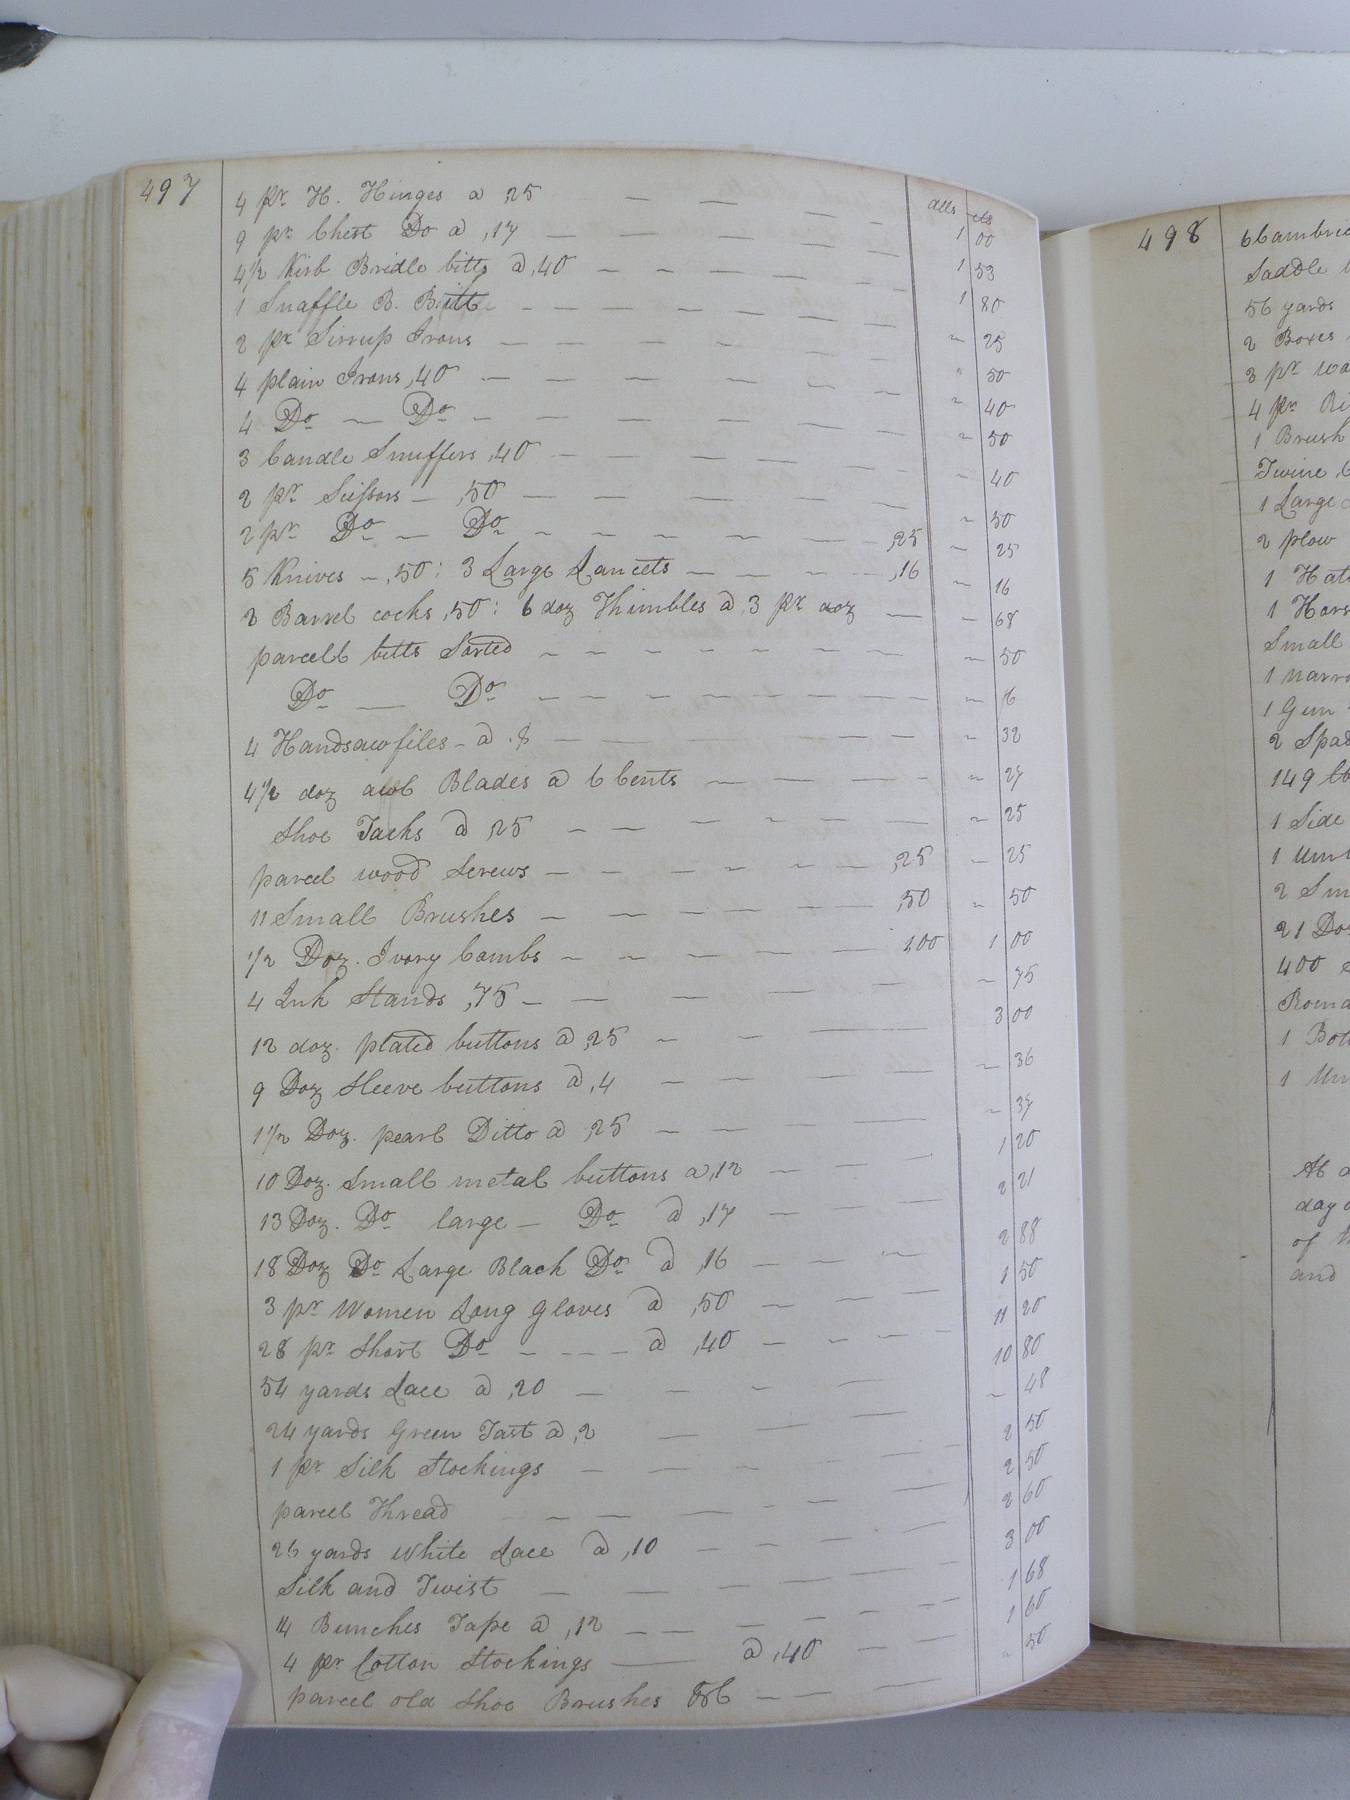 497
dlls cts
4 pr. H. Hinges a ,25 1 00
9 pr Chest Do a ,17 1 53
4½ Kirb Bridle bitts a ,40 1 80
1 Snaffle B. Bitt " 25
2 pr Sirrup Irons " 50
4 plain Irons ,40 " 40
4 Do Do " 50
3 Candle Snuffers ,40 " 40
2 pr Scissors ,50 " 50
2 pr Do Do ,25 " 25
5 Knives ,50 : 3 Large Lancets ,16 " 16
2 Barrel cocks ,50 : 6 doz Thimbles a ,3 pr doz " 68
parcell bitts Sorted " 50
Do Do " 16
4 Handsawfiles a .8 " 32
4½ doz awl Blades a 6 Cents " 27
Shoe Tacks a ,25 " 25
parcel wood Screws ,25 " 25
11 Small Brushes ,50 " 50
½ Doz. Ivory Combs 1,00 1 00
4 Ink Stands ,75 " 75
12 doz. plated buttons a ,25 3 00
9 Doz Sleeve buttons a ,4 " 36
1½ Doz. pearl Ditto a ,25 " 37
10 Doz. Small metal buttons a ,12 1 20
13 Doz. Do large Do a ,17 2 21
18 Doz Do Large Black Do a ,16 2 88
3 pr Women Long gloves a ,50 1 50
28 pr Short Do a ,40 11 20
54 yards Lace a ,20 10 80
24 yards Green Tast a ,2 " 48
1 pr Silk Stockings 2 50
parcel Thread 2 50
26 yards white Lace a ,10 2 60
Silk and Twist 3 00
14 Bunches Tape a ,12 1 68
4 pr Cotton Stockings a ,40 1 60
parcel old Shoe Brushes &c " 50
498
6 Cambric
Saddle
56 yards
2 Boxes
3 pr
4 pr
1 Brush
Twine
1 Large
2 plow
1
1
Small
1
1 Gun
2
149
1 Side
1
2
21
400
1
1
day
of
and